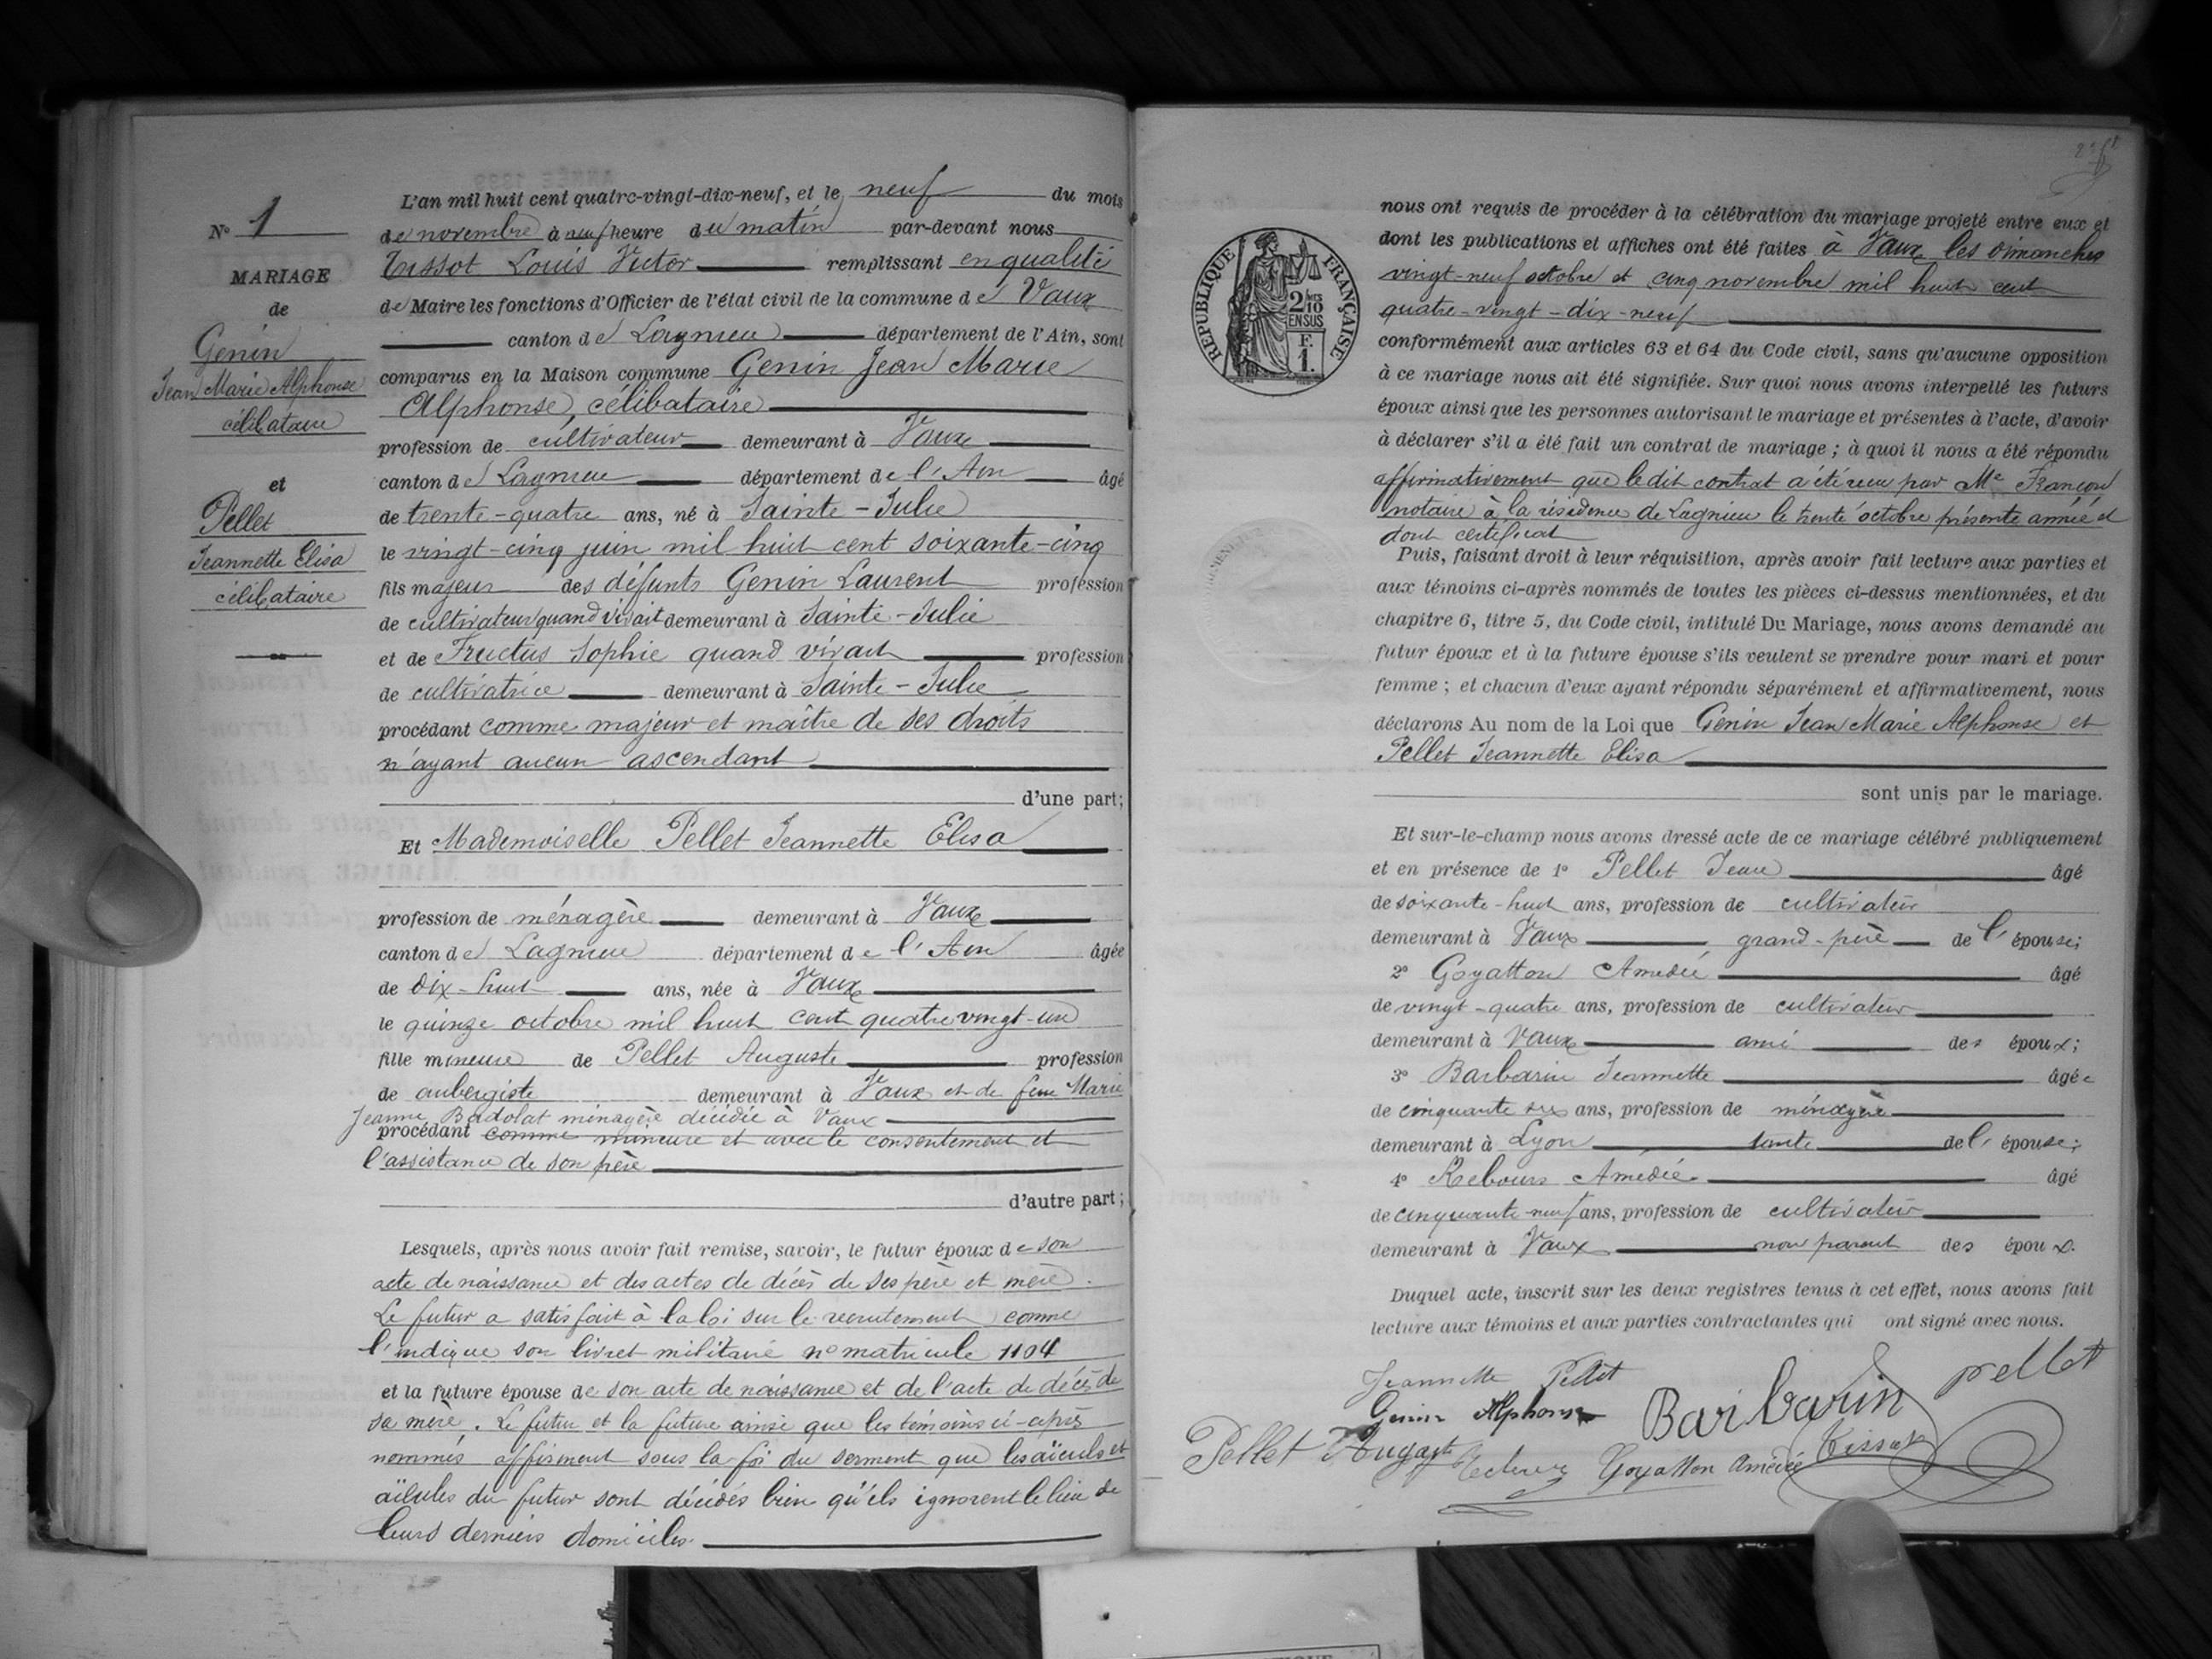 N° 1
MARIAGE
de
Genin
Jean Marie Alphonse
célibataire
et
Pellet
Jeannette Elisa
célibataire
L'an mil huit cent quatre-vingt-dix-neuf, et le neuf du mois
de novembre à neuf heure du matin par-devant nous
Tissot Louis Victor remplissant en qualité
de Maire les fonctions d'Officier de l'état civil de la commune de Vaux
canton de Lagnieu département de l'Ain, sont
comparus en la Maison commune Genin Jean Marie
Alphonse, célibataire
profession de cultivateur demeurant à Vaux
canton de Lagnieu département de l'Ain âgé
de trente-quatre ans, né à Sainte-Julie
le vingt-cinq juin mil huit cent soixante-cinq
fils majeur des défunts Genin Laurent profession
de cultivateur quand vivait demeurant à Sainte-Julie
et de Fructus Sophie quand vivait profession
de cultivatrice demeurant à Sainte-Julie
procédant comme majeur et maître de ses droits
n'ayant aucun ascendant
d'une part;
Et Mademoiselle Pellet Jeannette Elisa
profession de ménagère demeurant à Vaux
canton de Lagnieu département de l'Ain âgée
de dix-huit ans, née à Vaux
le quinze octobre mil huit cent quatre vingt-un
fille mineure de Pellet Auguste profession
de aubergiste demeurant à Vaux et de feue Marie
Jeanne Badolat ménagère décédée à Vaux
procédant comme mineure et avec le consentement et
l'assistance de son père
d'autre part;
Lesquels, après nous avoir fait remise, savoir, le futur époux de son
acte de naissance et des actes de décès de ses père et mère.
Le futur a satisfait à la loi sur le recrutement comme
l'indique son livret militaire n° matricule 1104
et la future épouse de son acte de naissance et de l'acte de décès de
sa mère. Le futur et la future ainsi que les témoins ci-après
nommés affirment sous la foi du serment que les aïeuls et
aïeules du futur sont décédés bien qu'ils ignorent le lieu de
leurs derniers domiciles.
RÉPUBLIQUE FRANÇAISE
2/10
EN SUS
F.
1.
nous ont requis de procéder à la célébration du mariage projeté entre eux et
dont les publications et affiches ont été faites à Vaux les dimanches
vingt-neuf octobre et cinq novembre mil huit cent
quatre-vingt-dix-neuf
conformément aux articles 63 et 64 du Code civil, sans qu'aucune opposition
à ce mariage nous ait été signifiée. Sur quoi nous avons interpellé les futurs
époux ainsi que les personnes autorisant le mariage et présentes à l'acte, d'avoir
à déclarer s'il a été fait un contrat de mariage; à quoi il nous a été répondu
affirmativement que le dit contrat a été reçu par Me Françon
notaire à la résidence de Lagnieu le trente octobre présente année et
dont certificat
Puis, faisant droit à leur réquisition, après avoir fait lecture aux parties et
aux témoins ci-après nommés de toutes les pièces ci-dessus mentionnées, et du
chapitre 6, titre 5, du Code civil, intitulé Du Mariage, nous avons demandé au
futur époux et à la future épouse s'ils veulent se prendre pour mari et pour
femme; et chacun d'eux ayant répondu séparément et affirmativement, nous
déclarons Au nom de la Loi que Genin Jean Marie Alphonse et
Pellet Jeannette Elisa
sont unis par le mariage.
Et sur-le-champ nous avons dressé acte de ce mariage célébré publiquement
et en présence de 1° Pellet Jean âgé
de soixante-huit ans, profession de cultivateur
demeurant à Vaux grand-père de l'épouse;
2° Goyatton Amédée âgé
de vingt-quatre ans, profession de cultivateur
demeurant à Vaux ami des époux;
3° Barbarin Jeannette âgée
de cinquante six ans, profession de ménagère
demeurant à Lyon tante de l'épouse;
4° Rebours Amédée âgé
de cinquante-neuf ans, profession de cultivateur
demeurant à Vaux non parent des époux.
Duquel acte, inscrit sur les deux registres tenus à cet effet, nous avons fait
lecture aux témoins et aux parties contractantes qui ont signé avec nous.
Jeannette Pellet
Genin Alphonse Barbarin Pellet
Pellet Auguste Goyatton Amédée Tissot